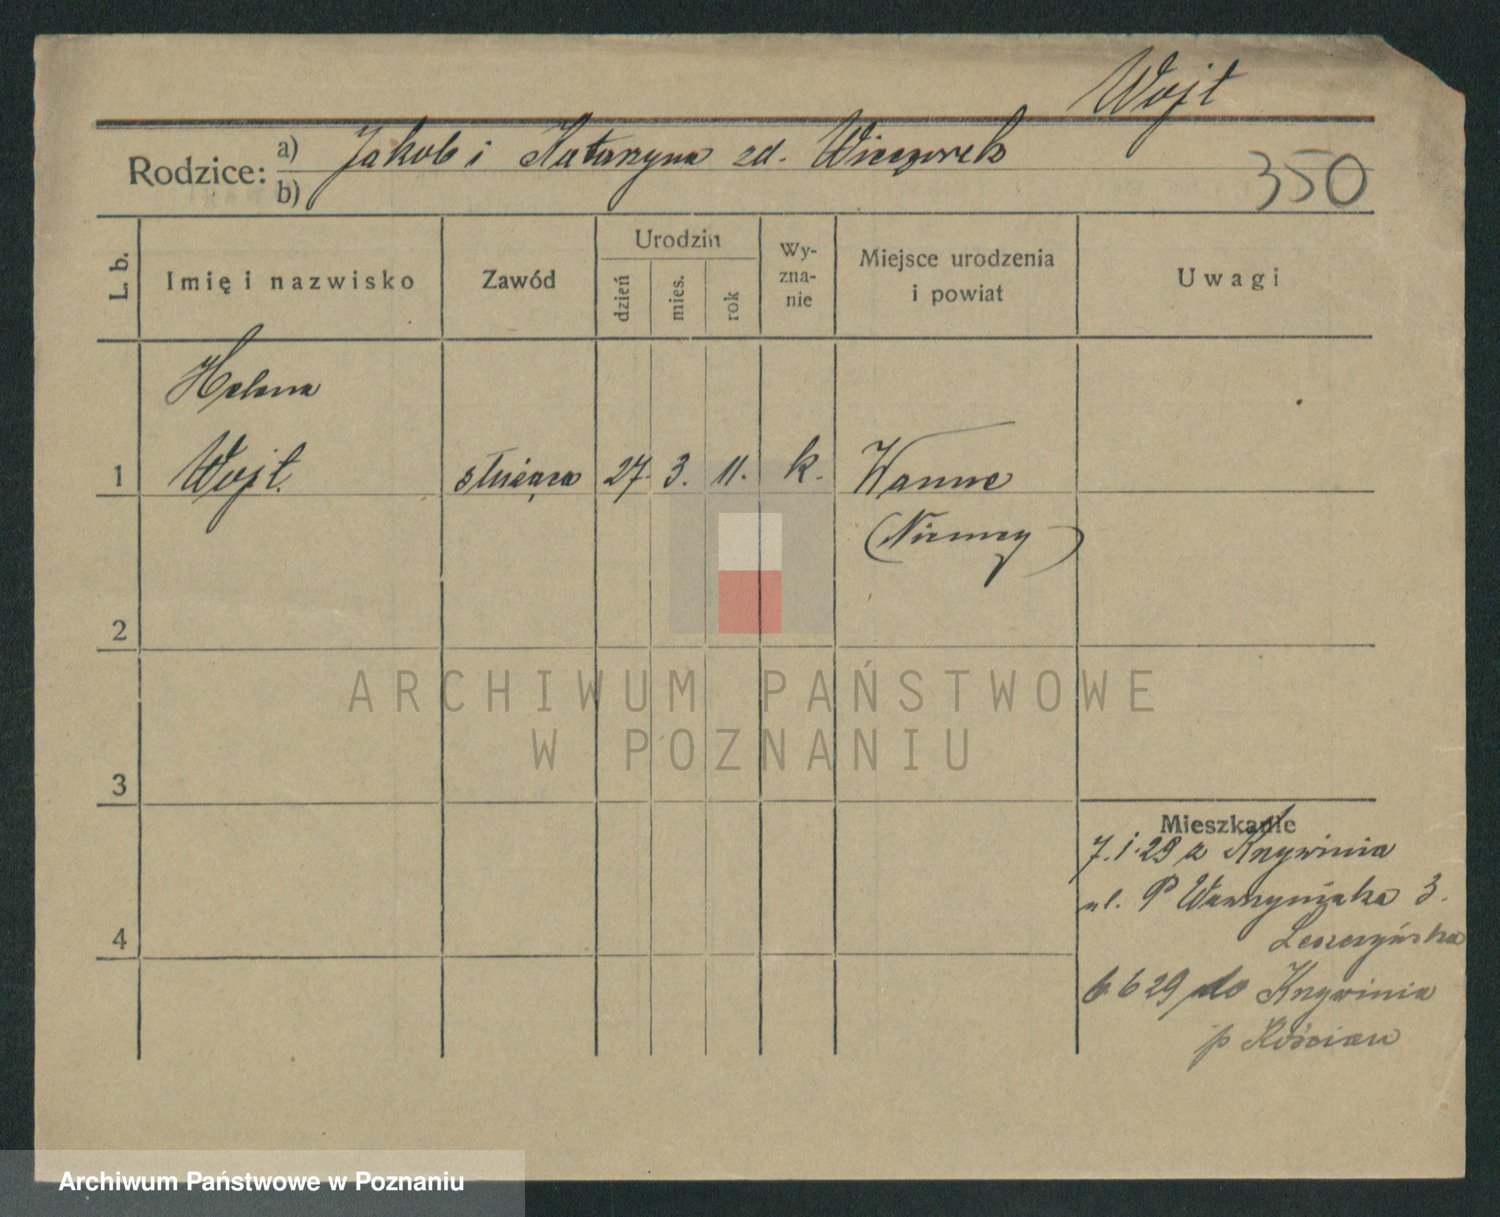 Wojt
Rodzice: a) Jakob i Katarzyna zd. Wieczorek
b)
350
L. b.
Imię i nazwisko
Zawód
Urodzin
dzień
mies.
rok
Wy-
zna-
nie
Miejsce urodzenia
i powiat
Uwagi
Helena
1 Wojt. służąca 27. 3. 11. k. Wanne
(Niemcy)
2
ARCHIWUM PAŃSTWOWE
W POZNANIU
3
Mieszkanie
7.1.29 z Krzywinia
ul. P Wawrzyniaka 3.
Leszczyńska
4
6 6 29 do Krzywinia
p Kościan
Archiwum Państwowe w Poznaniu